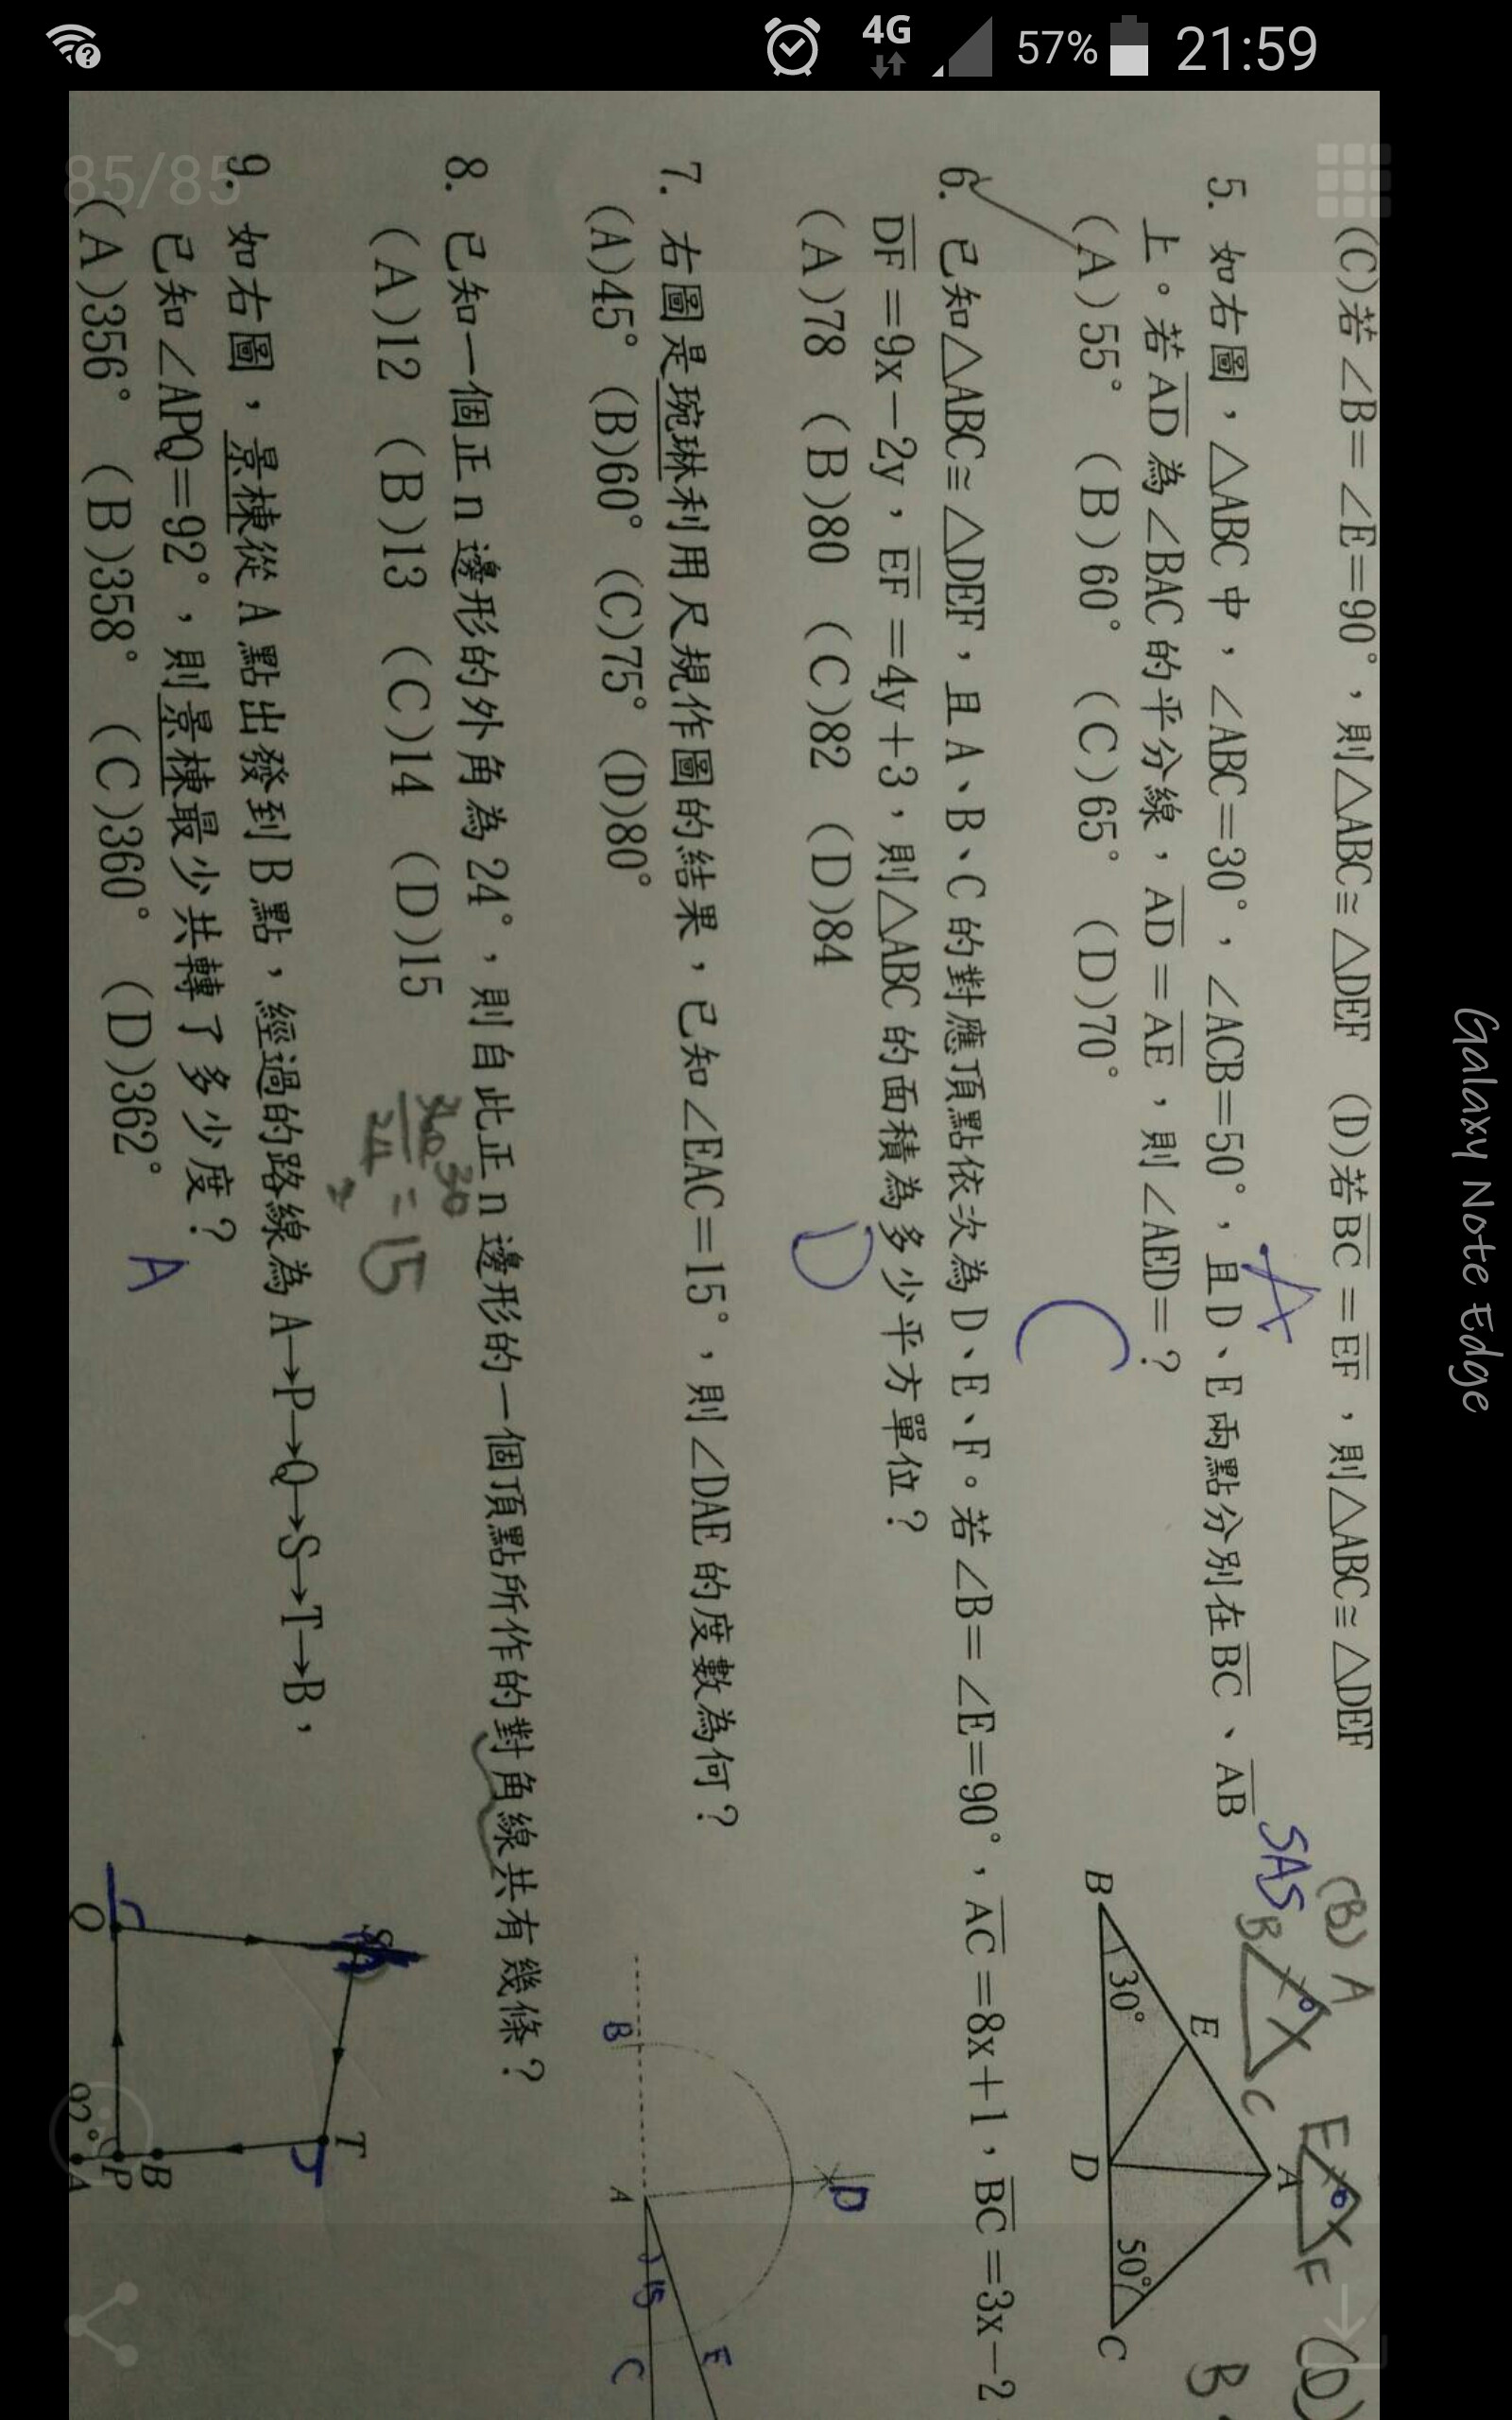 4G
57%
21:59
85/85
(C)若∠B=∠E=90°，則△ABC≅△DEF (D)若BC=EF，則△ABC≅△DEF
A
5. 如右圖，△ABC中，∠ABC=30°，∠ACB=50°，且D、E兩點分別在BC、AB
上。若AD為∠BAC的平分線，AD=AE，則∠AED=？
(A)55° (B)60° (C)65° (D)70°
C
(B) A
SAS
B
C
E
F
(D)
B
A
E
B
30°
D
50°
C
6. 已知△ABC≅△DEF，且A、B、C的對應頂點依次為D、E、F。若∠B=∠E=90°，AC=8x+1，BC=3x-2
DF=9x-2y，EF=4y+3，則△ABC的面積為多少平方單位？
(A)78 (B)80 (C)82 (D)84
D
7. 右圖是琬琳利用尺規作圖的結果，已知∠EAC=15°，則∠DAE的度數為何？
(A)45° (B)60° (C)75° (D)80°
D
B
A
15
E
C
8. 已知一個正n邊形的外角為24°，則自此正n邊形的一個頂點所作的對角線共有幾條？
(A)12 (B)13 (C)14 (D)15
360 30
24 2 = 15
9. 如右圖，景棟從A點出發到B點，經過的路線為A→P→Q→S→T→B，
已知∠APQ=92°，則景棟最少共轉了多少度？
(A)356° (B)358° (C)360° (D)362°
A
S
T
Q
B
P
A
92°
Galaxy Note Edge